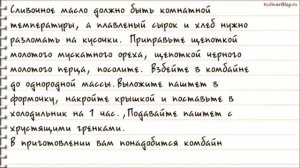 KulinarBlog.ru
Сливочное масло должно быть комнатной
температуры, а плавленый сырок и хлеб нужно
разломать на кусочки. Приправьте щепоткой
молотого мускатного ореха, щепоткой черного
молотого перца, посолите. Взбейте в комбайне
до однородной массы.Выложите паштет в
формочку, накройте крышкой и поставьте в
холодильник на 1 час. ,Подавайте паштет с
хрустящими гренками.
В приготовлении вам понадобится комбайн